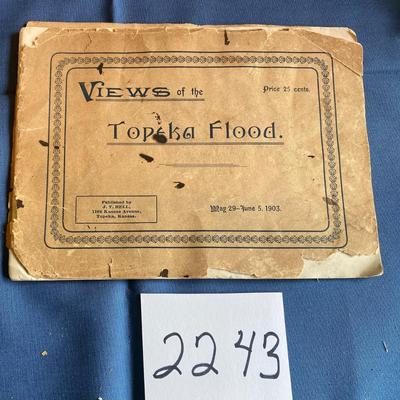 Views of the
Price 25 cents.
Topeka Flood.
Published by
J. T. BELL,
1199 Kansas Avenue,
Topeka, Kansas.
May 29-June 5, 1903.
2243